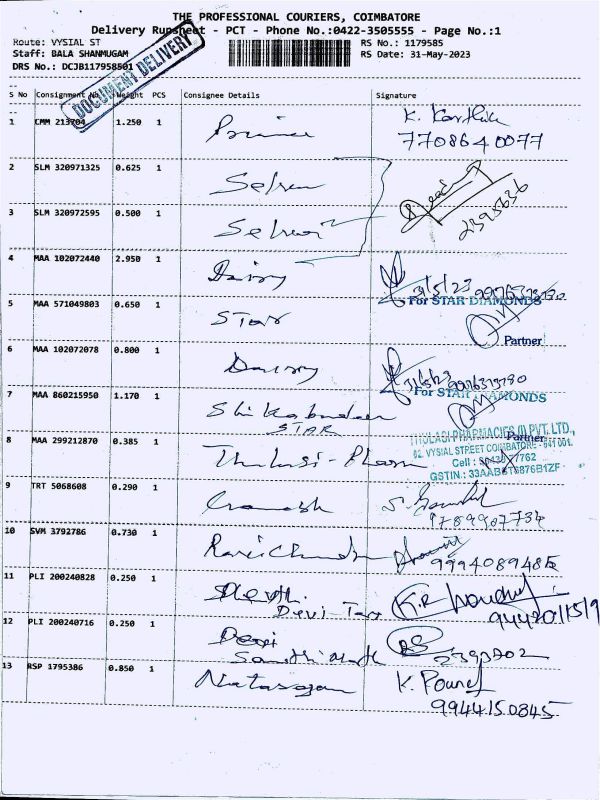 THE PROFESSIONAL COURIERS, COIMBATORE
Delivery Runsheet - PCT - Phone No.:0422-3505555 - Page No.:1
Route: VYSIAL ST
RS No.: 1179585
Staff: BALA SHANMUGAM
RS Date: 31-May-2023
DRS No.: DCJB117958501
DOCUMENT DELIVERY
S No Consignment No Weight PCS Consignee Details Signature
1 CMM 213704 1.250 1 Prince K. Karthik
7708640077
2 SLM 320971325 0.625 1 Selvan
3 SLM 320972595 0.500 1 Selvan
2395636
4 MAA 102072440 2.950 1 Dairy 31/5/23
For STAR DIAMONDS
5 MAA 571049803 0.650 1 STAR
Partner
6 MAA 102072078 0.800 1 Dairy 31/5/23
For STAR DIAMONDS
7 MAA 860215950 1.170 1
STAR
Partner
THULASI PHARMACIES (I) PVT. LTD.,
8 MAA 299212870 0.385 1 Thulasi-Pharm
62, VYSIAL STREET COIMBATORE - 641 001.
Cell : 7762
GSTIN.: 6876B1ZF
9 TRT 5068608 0.290 1
9789907734
10 SVM 3792786 0.730 1
11 PLI 200240828 0.250 1 Devi K.R.
Devi-Tex
12 PLI 200240716 0.250 1 Devi
2393202
13 RSP 1795386 0.850 1 Natarajan K.
9944150845